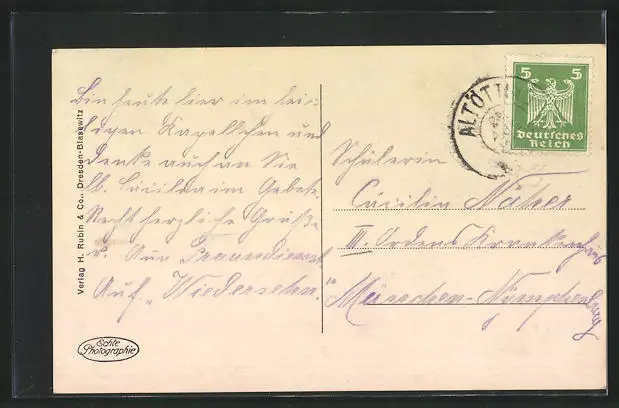 Bin heute hier im hei-
ligen Kapellchen und
denke auch an Sie
lb. Cäcilia im Gebete.
Recht herzliche Grüße
u.
Auf „Wiedersehn."
Verlag H. Rubin & Co., Dresden-Blasewitz
Echte
Photographie
ALTÖTT
5 5
Deutsches
Reich
Schülerin
Cäcilia Näher
III. Ordens Krankenhaus
München-Nymphenburg